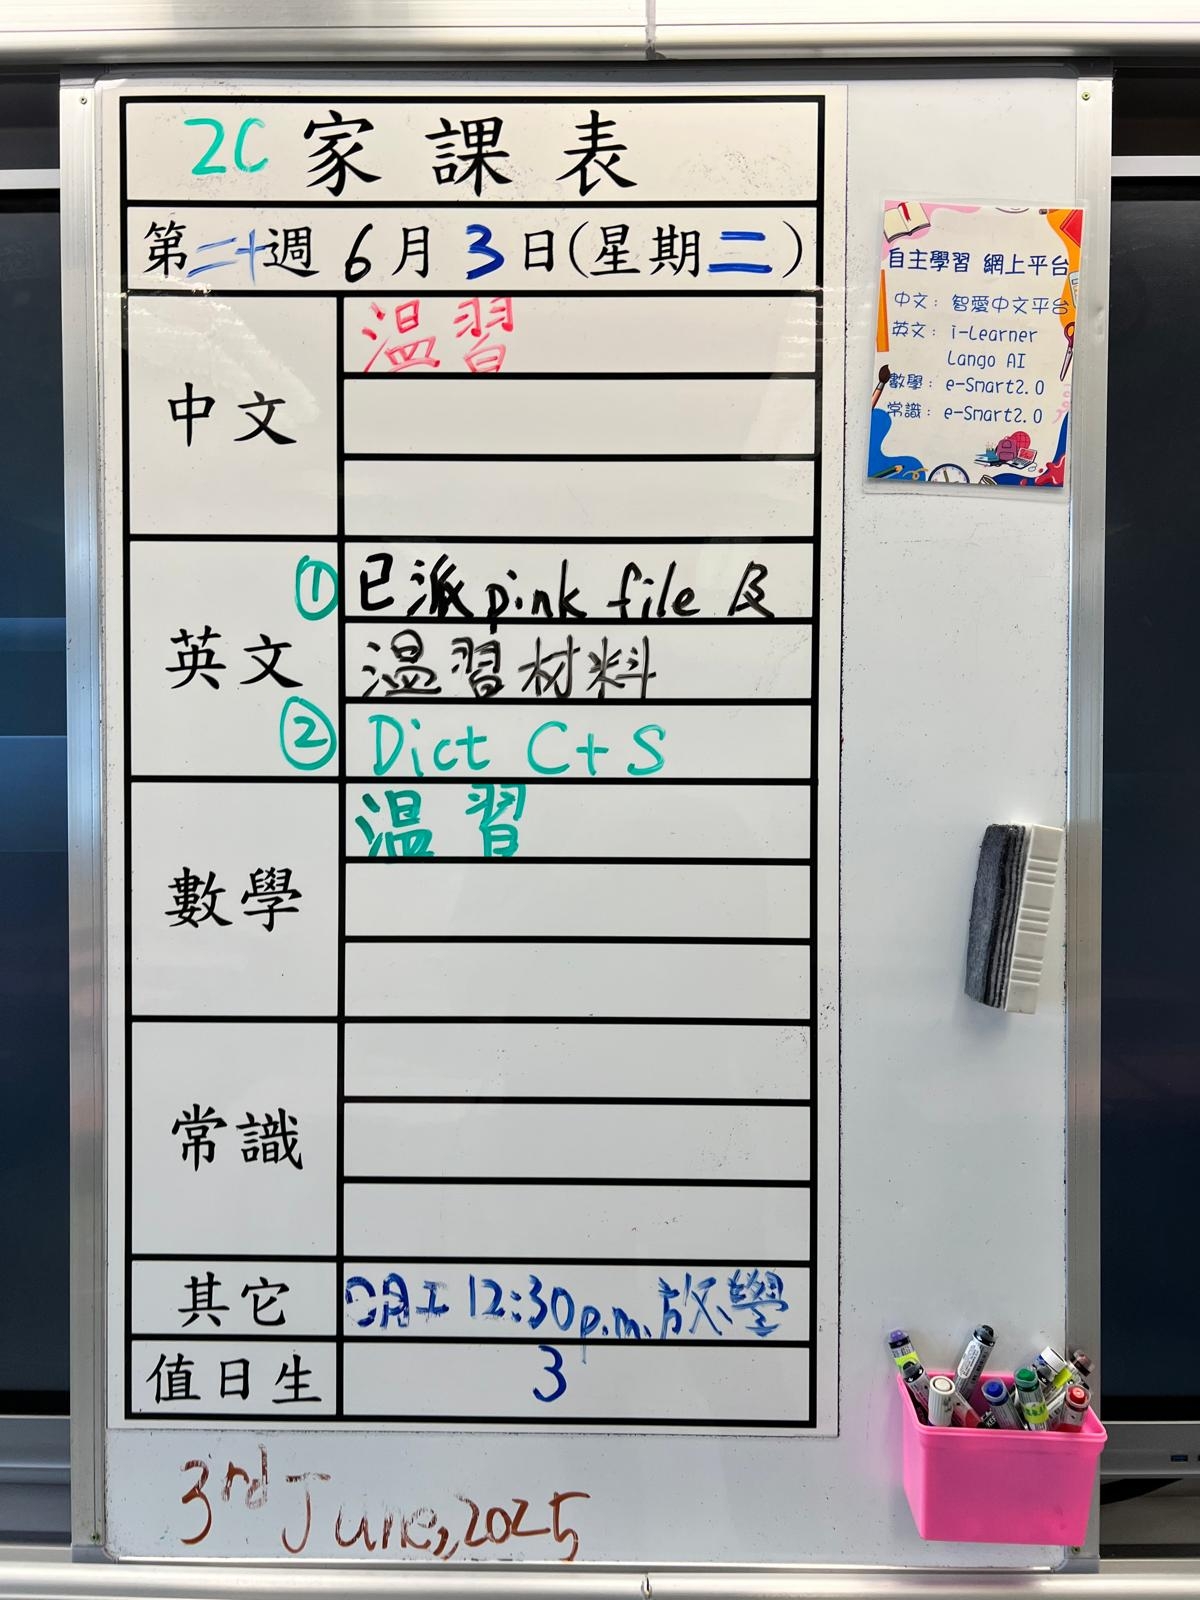 2C 家課表
第二十週 6月3日(星期二)
中文
溫習
英文
① 已派pink file 及
溫習材料
② Dict C+S
數學
溫習
常識
其它
12:30p.m.放學
值日生
3
3rd June,2025
自主學習 網上平台
中文: 智愛中文平台
英文: i-Learner
Lango AI
數學: e-Smart2.0
常識: e-Smart2.0